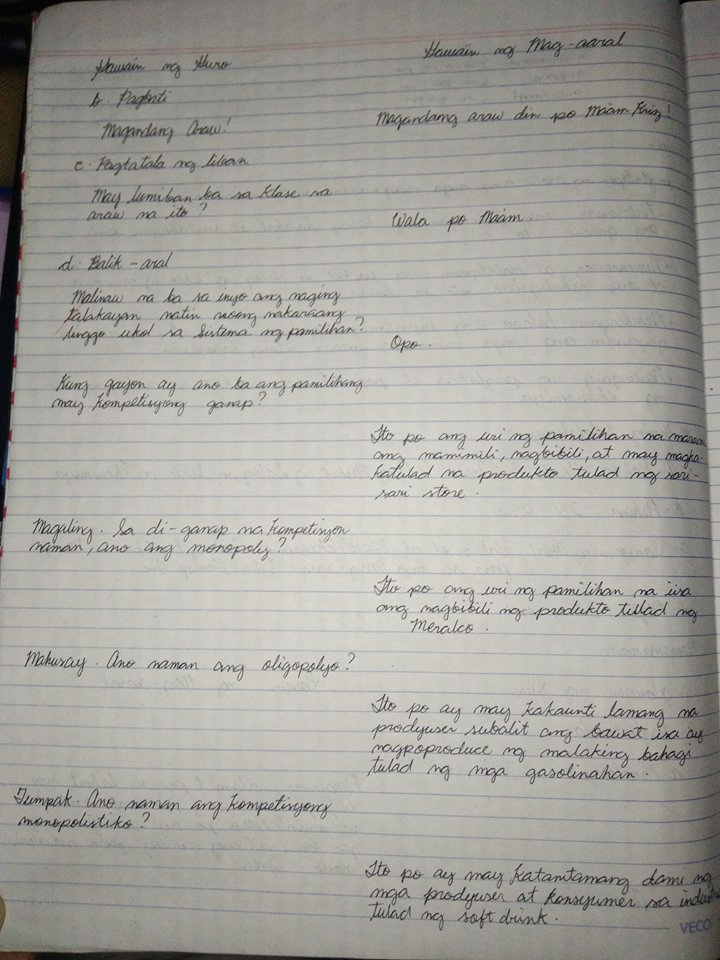 Gawain ng Guro
Gawain ng Mag-aaral
b. Pagbati
Magandang Araw!
Magandang araw din po Maam Kriz!
c. Pagtatala ng liban
May lumiban ba sa klase sa
araw na ito?
Wala po Maam.
d. Balik-aral
Malinaw na ba sa inyo ang naging
talakayan natin noong nakaraang
linggo ukol sa Sistema ng pamilihan?
Opo.
Kung gayon ay ano ba ang pamilihang
may kompetisyong ganap?
Ito po ang uri ng pamilihan na marami
ang mamimili, nagbibili, at may magka-
katulad na produkto tulad ng sari-
sari store.
Magaling. Sa di-ganap na kompetisyon
naman, ano ang monopoly?
Ito po ang uri ng pamilihan na iisa
ang nagbibili ng produkto tulad ng
Meralco.
Mahusay. Ano naman ang oligopolyo?
Ito po ay may kakaunti lamang na
prodyuser subalit ang bawat isa ay
nagpoproduce ng malaking bahagi
tulad ng mga gasolinahan.
Tumpak. Ano naman ang kompetisyong
monopolistiko?
Ito po ay may katamtamang dami ng
mga prodyuser at konsyumer sa
tulad ng soft drink.
VECO